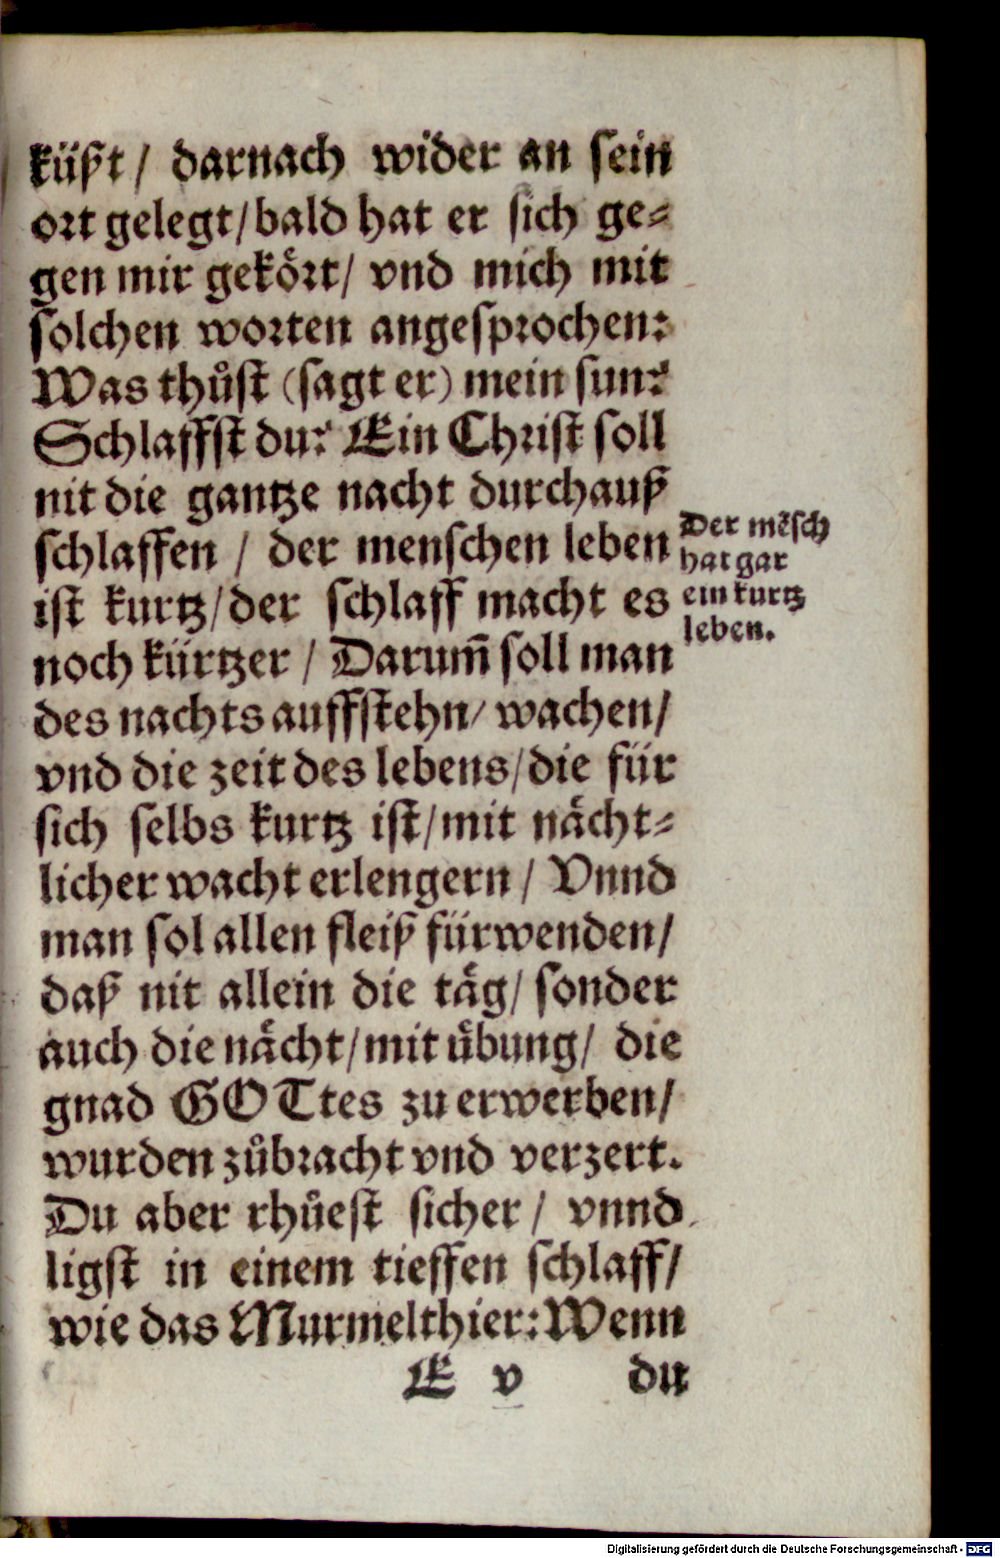 küßt / darnach wider an sein
ort gelegt / bald hat er sich ge⸗
gen mir gekoͤrt / vnd mich mit
solchen worten angesprochen:
Was thůst (sagt er) mein sun?
Schlaffst du? Ein Christ soll
nit die gantze nacht durchauß
schlaffen / der menschen leben
ist kurtz / der schlaff macht es
noch kürtzer / Darum̄ soll man
des nachts auffstehn / wachen /
vnd die zeit des lebens / die für
sich selbs kurtz ist / mit naͤcht⸗
licher wacht erlengern / Vnnd
man sol allen fleiß fürwenden /
daß nit allein die taͤg / sonder
auch die naͤcht / mit uͤbung / die
gnad GOTtes zu erwerben /
wurden zůbracht vnd verzert.
Du aber rhůest sicher / vnnd
ligst in einem tieffen schlaff /
wie das Murmelthier: Wenn
E v du
Der mẽsch
hat gar
ein kurtz
leben.
Digitalisierung gefördert durch die Deutsche Forschungsgemeinschaft - DFG